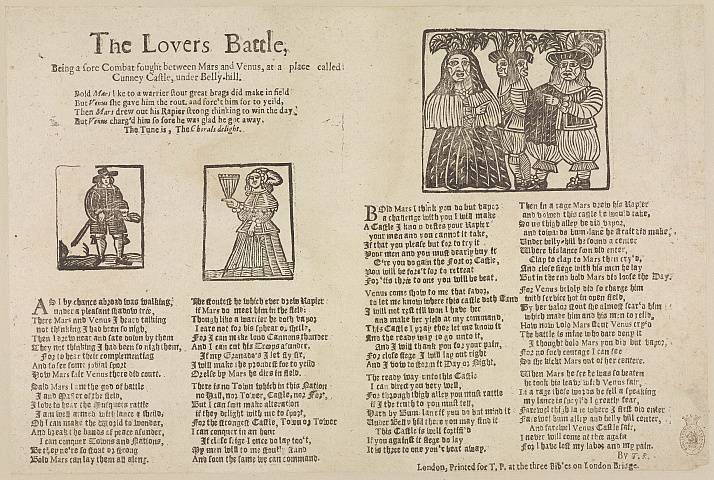 The Lovers Battle,
Being a sore Combat fought between Mars and Venus, at a place called
Cunney Castle, under Belly-hill.
Bold Mars like to a warrier stout great brags did make in field
But Venus she gave him the rout, and forc't him for to yeild,
Then Mars drew out his Rapier strong thinking to win the day,
But Venus charg'd him so sore he was glad he got away.
The Tune is, The Charals delight.
AS I by chance abroad was walking,
under a pleasant shadow tree,
There Mars and Venus I heard talking
not thinking I had been so nigh,
Then I drew near and sate down by them
They not thinking I had been so nigh them,
For to hear their complementing
And to see some jovial sport
How Mars fair Venus there did court.
Bold Mars I am the god of battle
I and Master of the field,
I love to hear the Musquets rattle
I am well armed with lance & shield,
Oh I can make the world to wonder,
And break the bands of peace asunder,
I can conquer Towns and Nations,
Be they ne'r so stout or strong
Bold Mars can lay them all along.
The stoutest he which ever drew Rapier
If Mars do meet him in the field:
Though like a warrier he doth vapor
I care not for his spear or shield,
For I can make loud Cannons thunder
And I can cut his Troops asunder,
If my Granado's I let fly sir,
I will make the proudest for to yeild
Or else by Mars he dies in field.
There is no Town which in this Nation
no Hill, nor Tower, Castle, nor For',
But I can soon make alteration
if they delight with me to sport,
For the strongest Castle, Town or Tower
I can conquer in an hour
If close siege I once do lay to't,
My men will to me stoutly stand
And soon the same we can command.
BOld Mars I think you do but vapor
a challenge with you I will make
A Castle I know defies your Rapier
your men and you cannot it take,
If that you please but for to try it
Your men and you must dearly buy it
E're you do gain the Fort or Castle,
You will be forc't for to retreat
For 'tis three to one you will be beat.
Venus come show to me that favor,
to let me know where this castle doth stand
I will not rest till won I have her
and make her yield at my command,
This Castle I pray thee let me know it
And the ready way to go unto it,
And I will thank you for your pain,
For close siege I will lay out right
And I vow to storm it Day or Night.
The ready way unto this Castle
I can direct you very well,
For through thigh alley you must rattle
if I the truth to you must tell,
Hard by Bum-lane if you do but mind it
Under Belly hill there you may find it
This Castle is well fortifi'd
If you against it siege do lay
It is three to one you'r beat away.
Then in a rage Mars drew his Rapier
and vowed this castle he would take,
So up thigh alley he did vapor,
and towards bum-lane he straft did make,
Under belly-hill he found a center
Where his lance soon did enter,
Clap to clap to Mars then cry'd,
And close siege with his men he lay
But in the end bold Mars did loose the Day.
For Venus bravely did so charge him
with service hot in open field,
By her valor stout she almost scar'd him
which made him and his men to yeild,
How now bold Mars quoth Venus cry'd
The battle is mine who dare deny it
I thought bold Mars you did but vapor,
For no such courage I can see
So she kickt Mars out of her centere.
When Mars he see he was so beaten
he took his leave with Venus fair,
In a rage these words he fell a speaking
my lance is spoyl'd I greatly fear,
Farewel thigh lane where I first did enter
Farewel bum alley and belly hill center,
And farewel Venus Castle fair,
I never will come at thee again
For I have lost my labor and my pain.
By T. R.
London, Printed for T. P. at the three Bibles on London Bridge.